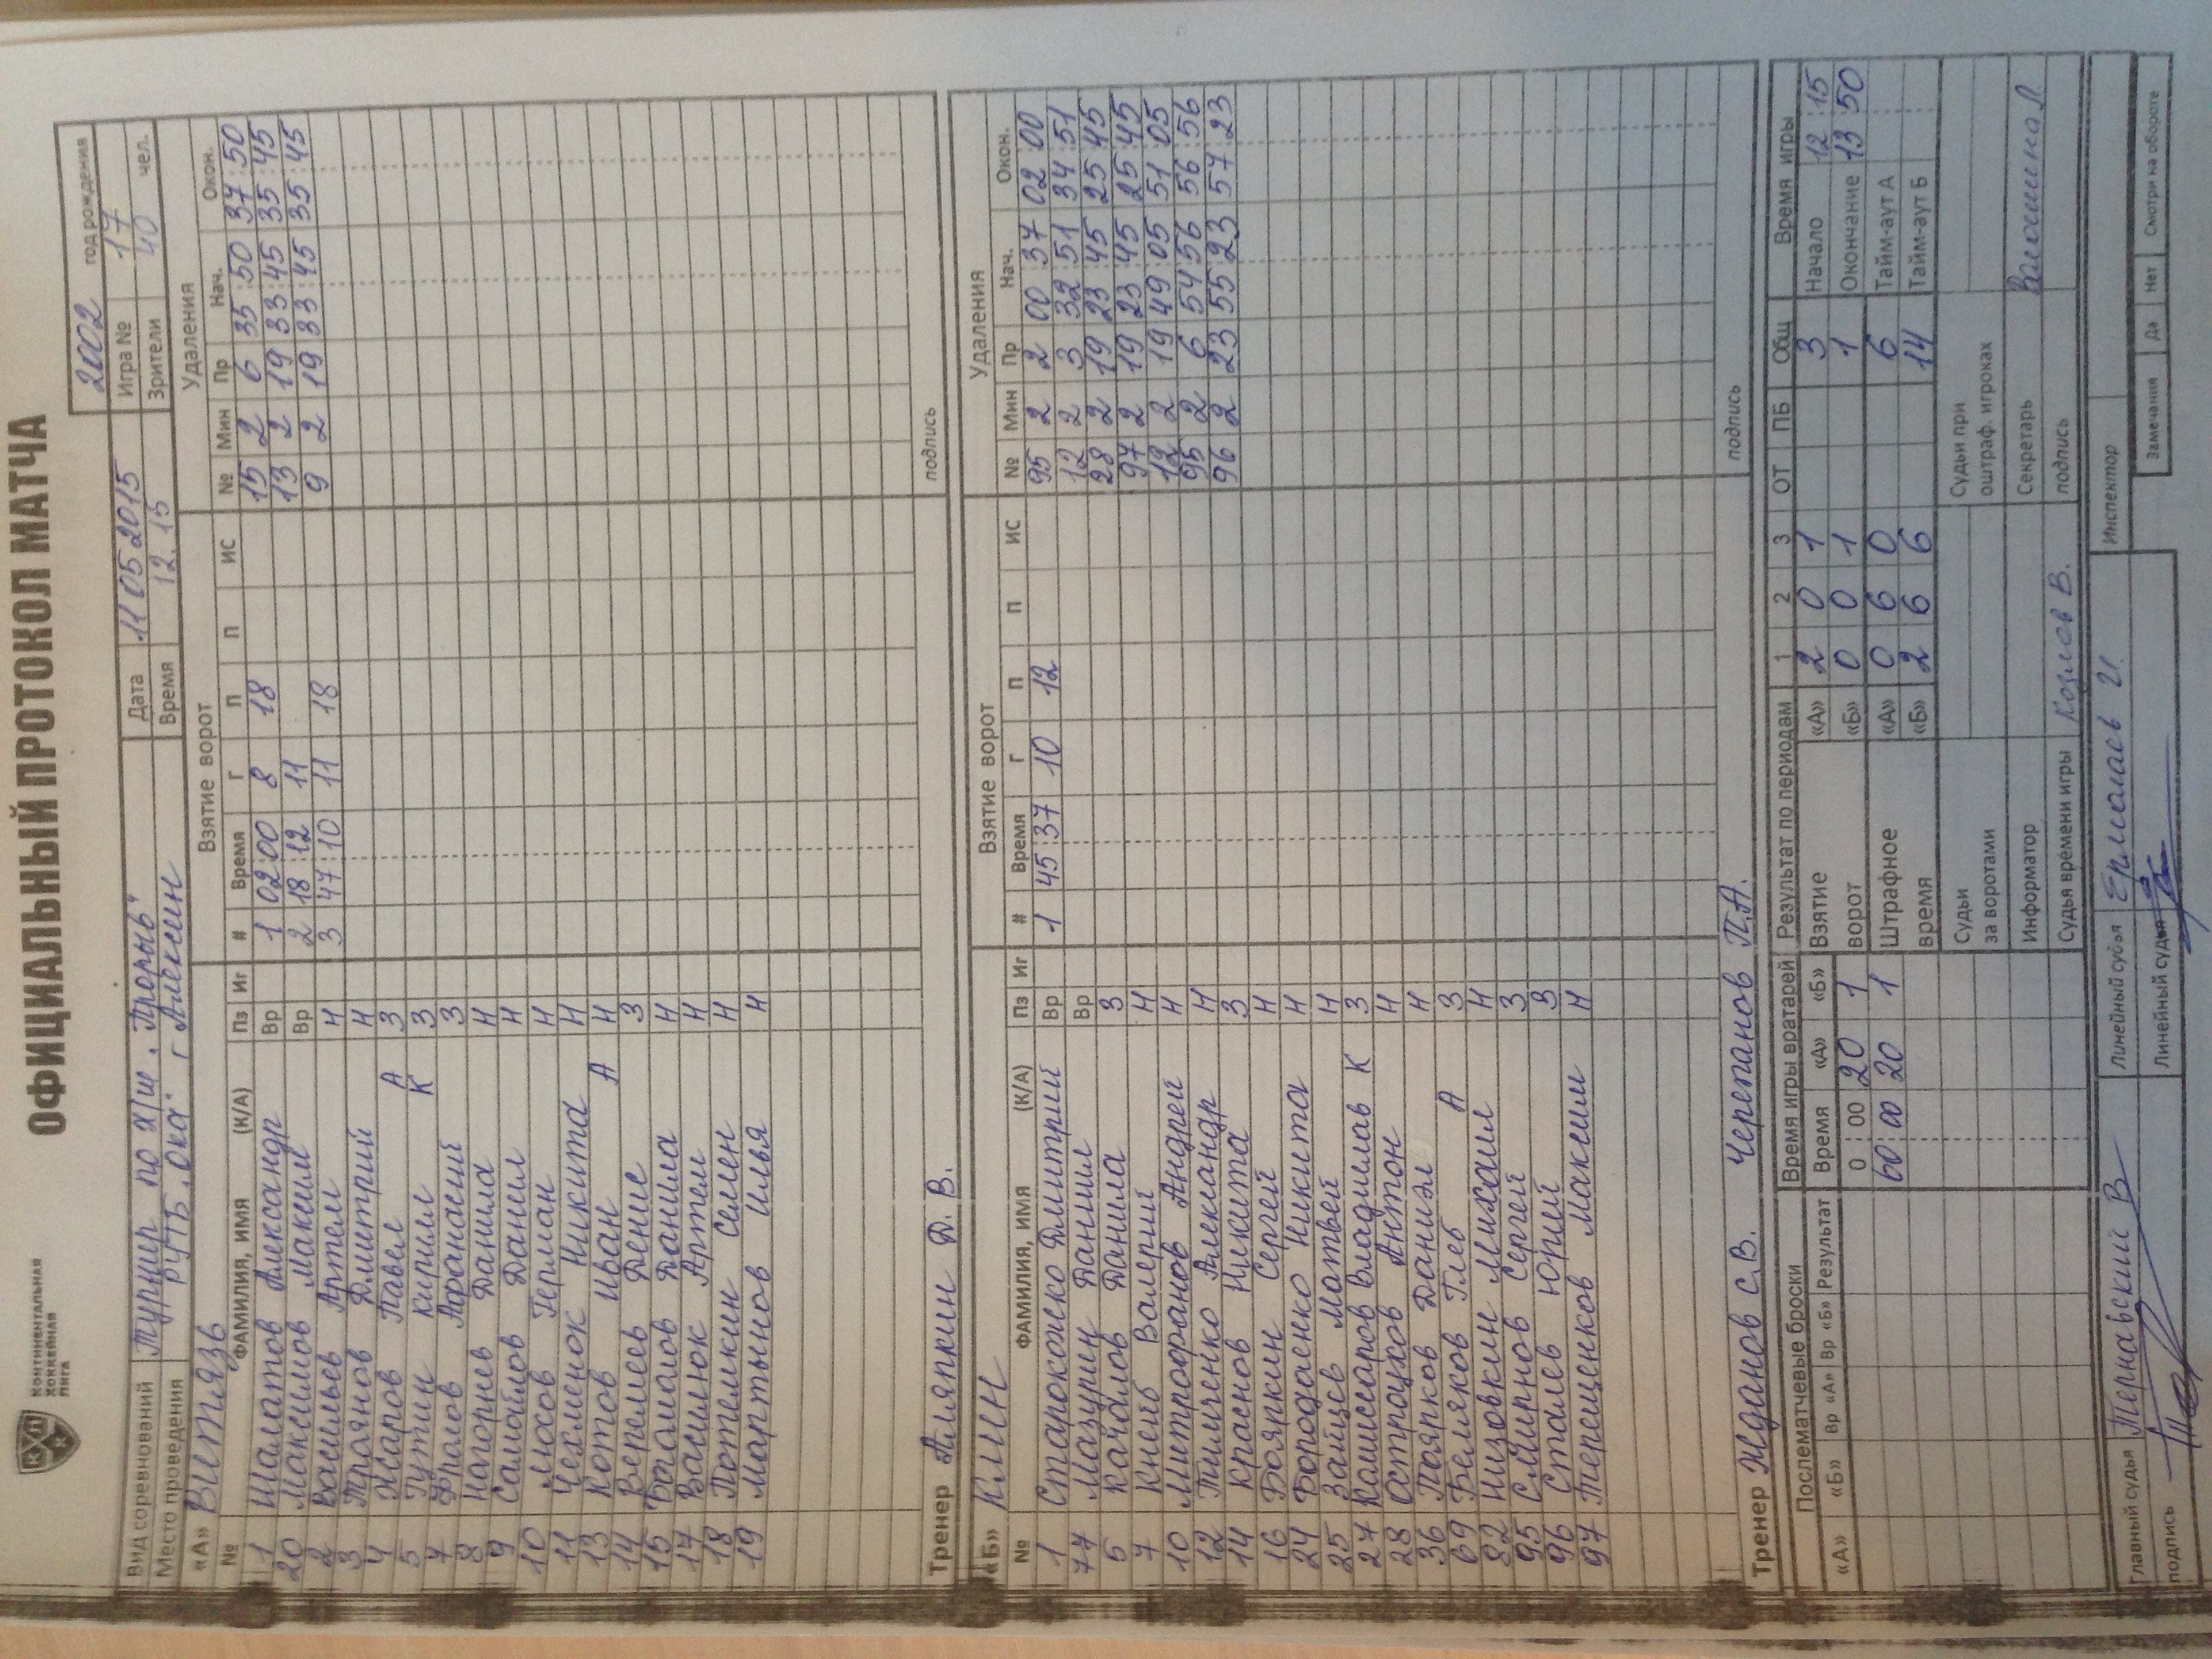 КОНТИНЕНТАЛЬНАЯ ХОККЕЙНАЯ ЛИГА
ОФИЦИАЛЬНЫЙ ПРОТОКОЛ МАТЧА
2002 год рождения
Вид соревнований Турнир по х/ш "Прорыв" Дата 11 05 2015 Игра № 17
Место проведения РУТБ "Ока" г Алексин Время 12.15 Зрители 40 чел.
«А» Витязь Взятие ворот Удаления
№ ФАМИЛИЯ, ИМЯ (К/А) Пз Иг # Время Г П П ИС № Мин Пр Нач. Окон.
1 Шалатов Александр Вр 1 02:00 8 18 15 2 6 35:50 37:50
20 Максимов Максим Вр 2 18:12 11 13 2 19 33:45 35:45
2 Васильев Артем Н 3 47:10 11 18 9 2 19 33:45 35:45
3 Троянов Дмитрий Н
4 Жаров Павел А З
5 Гутик Кирилл К З
7 Фролов Афанасий З
8 Нагорнев Данила Н
9 Самойлов Данил Н
10 Мохов Герман Н
11 Чехленок Никита Н
13 Котов Иван А Н
14 Веремеев Денис З
15 Богомолов Данила Н
17 Василюк Артем Н
18 Потемкин Семен Н
19 Мартынов Илья Н
Тренер Аляпкин Д. В. подпись
«Б» Клин Взятие ворот Удаления
№ ФАМИЛИЯ, ИМЯ (К/А) Пз Иг # Время Г П П ИС № Мин Пр Нач. Окон.
1 Старокожко Дмитрий Вр 1 45:37 10 12 95 2 2 00 37 02 00
77 Мазурин Даниил Вр 12 2 3 32:51 34:51
5 Качалов Данила З 28 2 19 23:45 25 45
7 Кнейб Валерий Н 97 2 19 23:45 25:45
10 Митрофанов Андрей Н 12 2 19 49 05 51 05
12 Тимченко Александр Н 95 2 6 54 56 56:56
14 Краснов Никита З 96 2 23 55 23 57:23
16 Бояркин Сергей Н
24 Бородаенко Никита Н
25 Зайцев Матвей Н
27 Комиссаров Владислав К З
28 Остроухов Антон Н
36 Поярков Даниэл Н
69 Беляков Глеб А З
82 Низовкин Михаил Н
95 Смирнов Сергей З
96 Сталев Юрий З
97 Терещенков Максим Н
Тренер Жданов С.В. Черепанов П.А. подпись
Послематчевые броски Время игры вратарей Результат по периодам 1 2 3 ОТ ПБ Общ Время игры
«А» «Б» Вр «А» Вр «Б» Результат Время «А» «Б» Взятие ворот «А» 2 0 1 3 Начало 12 15
0 : 00 20 1 «Б» 0 0 1 1 Окончание 13 50
60:00 20 1 Штрафное время «А» 0 6 0 6 Тайм-аут А
«Б» 2 6 6 14 Тайм-аут Б
Судьи за воротами Судьи при оштраф. игроках
Информатор Секретарь
Судья времени игры Козлов В. подпись
Главный судья Тернавский В Линейный судья Ермолась И. Инспектор
подпись Линейный судья Замечания Да Нет Смотри на обороте